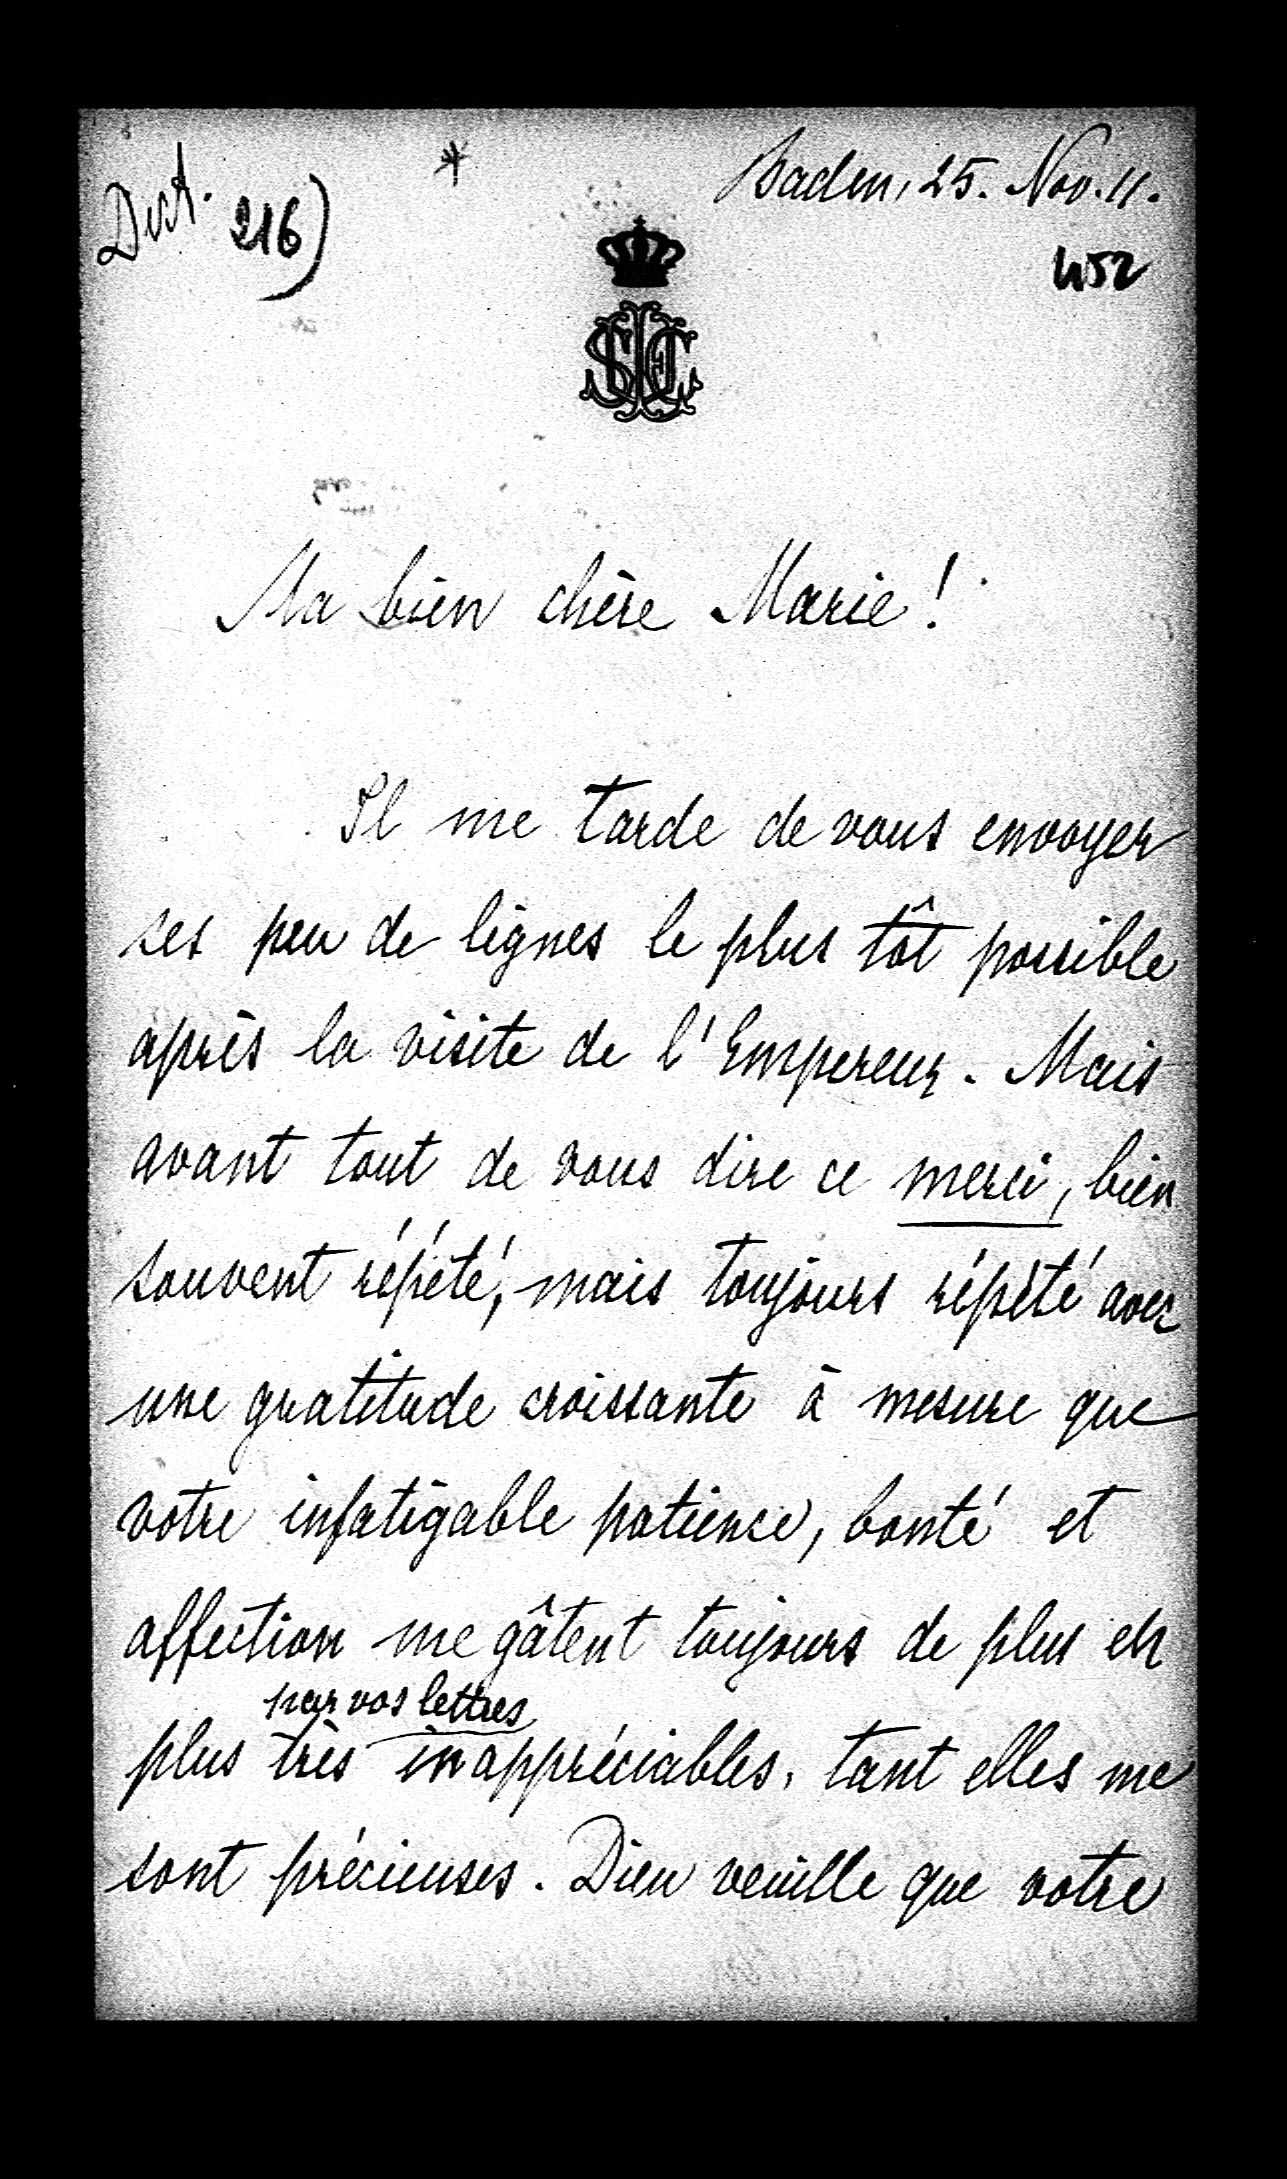 Dict. 216)
*
Baden, 25. Nov. 11.
452
Ma bien chère Marie!
Il me tarde de vous envoyer
ses peu de lignes le plus tôt possible
après la visite de l'Empereur. Mais
avant tout de vous dire ce merci, bien
souvent répété, mais toujours répété avec
une gratitude croissante à mesure que
votre infatigable patience, bonté et
affection me gâtent toujours de plus en
par vos lettres
plus très inappréciables, tant elles me
sont précieuses. Dieu veuille que votre